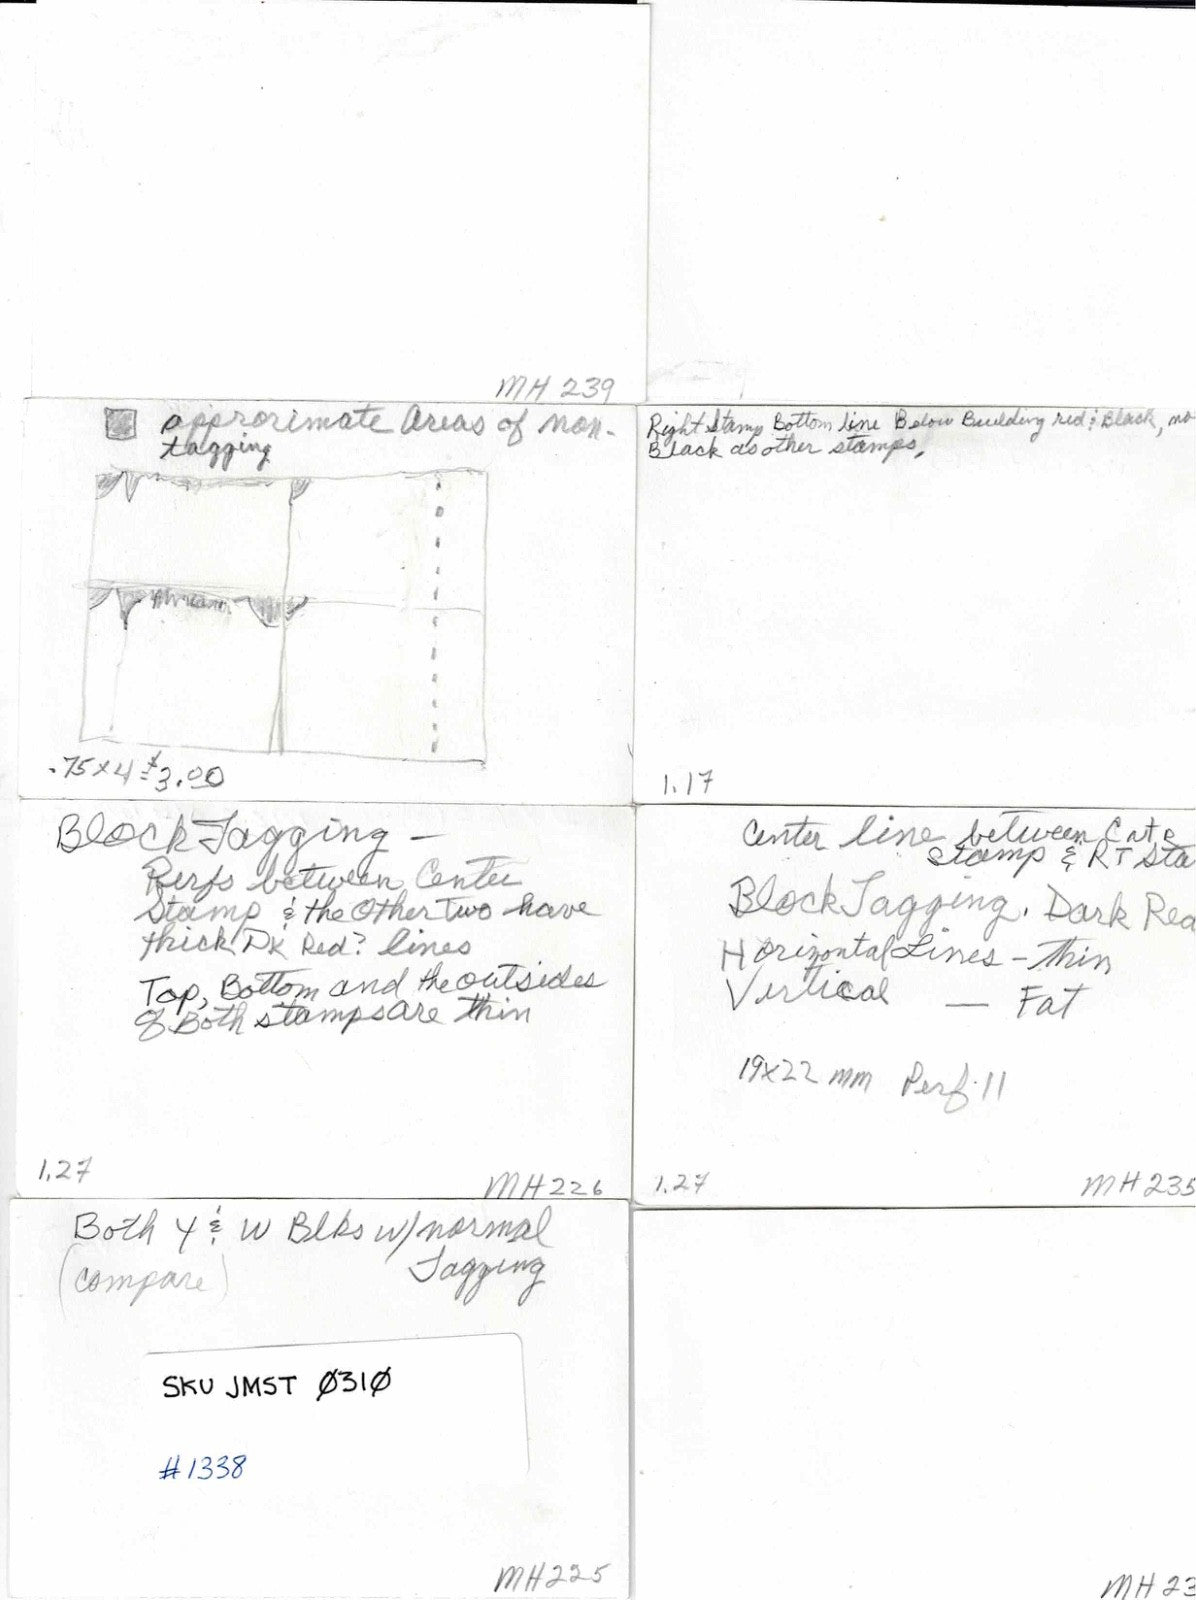 MH 239
approximate areas of non-
tagging
.75x4 = $3.00
Right Stamp Bottom line Below Building red & Black, no
Black as other stamps.
1.17
Block Tagging -
Perfs between Center
Stamp & the Other Two have
thick DK Red? lines
Top, Bottom and the outsides
of Both stamps are thin
1.27
MH226
Center line between
Stamp & RT Sta
Block Tagging. Dark Red
Horizontal Lines - thin
Vertical — Fat
19x22 mm Perf. 11
1.27
MH235
Both Y & W Blks w/normal
(compare) Tagging
SKU JMST Ø31Ø
#1338
MH225
MH 23